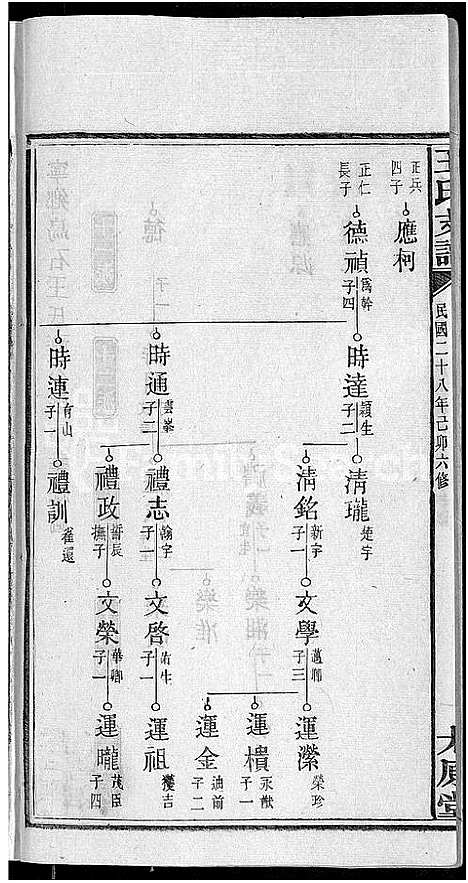 王氏支譜
民國二十八年己卯六修
太原堂
正兵
四子
應柯
正仁
長子
德禎
爲幹
子四
時達
穎生
子二
時通
雲峯
子二
時連
有山
子一
清瓏
楚宇
清銘
新宇
子一
禮志
翰宇
子一
禮政
哲辰
撫子
禮訓
文學
邁聊
子三
文啓
佑生
子一
文榮
華卿
子一
運濚
榮珍
運樻
永猷
子一
運金
迪前
子二
運祖
獲吉
運曨
茂臣
子四